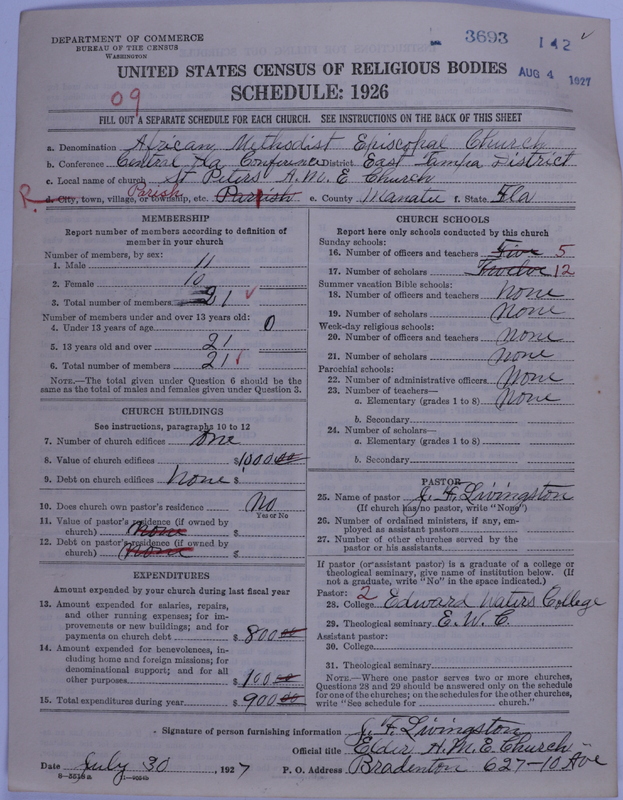 DEPARTMENT OF COMMERCE
BUREAU OF THE CENSUS
WASHINGTON
3693
142
AUG 4 1927
UNITED STATES CENSUS OF RELIGIOUS BODIES
SCHEDULE: 1926
09
FILL OUT A SEPARATE SCHEDULE FOR EACH CHURCH. SEE INSTRUCTIONS ON THE BACK OF THIS SHEET
a. Denomination African Methodist Episcopal Church
b. Conference Central Fla Conference District East Tampa District
c. Local name of church St Peters A.M.E Church
R. d. City, town, village, or township, etc. Parrish Parish e. County Manatee f. State Fla
MEMBERSHIP
Report number of members according to definition of member in your church
Number of members, by sex:
1. Male 11
2. Female 10
3. Total number of members 21
Number of members under and over 13 years old:
4. Under 13 years of age 0
5. 13 years old and over 21
6. Total number of members 21
NOTE.—The total given under Question 6 should be the same as the total of males and females given under Question 3.
CHURCH BUILDINGS
See instructions, paragraphs 10 to 12
7. Number of church edifices one
8. Value of church edifices $1000.00
9. Debt on church edifices None $
10. Does church own pastor's residence No
Yes or No
11. Value of pastor's residence (if owned by church) None $
12. Debt on pastor's residence (if owned by church) None $
EXPENDITURES
Amount expended by your church during last fiscal year
13. Amount expended for salaries, repairs, and other running expenses; for improvements or new buildings; and for payments on church debt $800.00
14. Amount expended for benevolences, including home and foreign missions; for denominational support; and for all other purposes $100.00
15. Total expenditures during year $900.00
CHURCH SCHOOLS
Report here only schools conducted by this church
Sunday schools:
16. Number of officers and teachers Five 5
17. Number of scholars Twelve 12
Summer vacation Bible schools:
18. Number of officers and teachers None
19. Number of scholars None
Week-day religious schools:
20. Number of officers and teachers None
21. Number of scholars None
Parochial schools:
22. Number of administrative officers None
23. Number of teachers—
a. Elementary (grades 1 to 8) None
b. Secondary
24. Number of scholars—
a. Elementary (grades 1 to 8)
b. Secondary
PASTOR
25. Name of pastor J. F. Livingston
(If church has no pastor, write "None")
26. Number of ordained ministers, if any, employed as assistant pastors
27. Number of other churches served by the pastor or his assistants
If pastor (or assistant pastor) is a graduate of a college or theological seminary, give name of institution below. (If not a graduate, write "No" in the space indicated.)
Pastor: 2
28. College Edward Waters College
29. Theological seminary E. W. C.
Assistant pastor:
30. College
31. Theological seminary
NOTE.—Where one pastor serves two or more churches, Questions 28 and 29 should be answered only on the schedule for one of the churches; on the schedules for the other churches, write "See schedule for church."
Signature of person furnishing information J. F. Livingston
Official title Elder A.M.E. Church
Date July 30, 1927 P. O. Address Bradenton 627-10 Ave